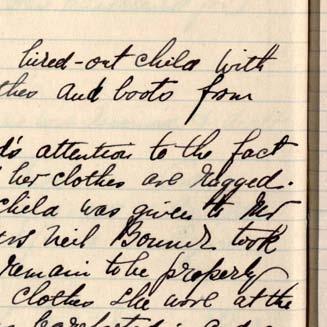 hired-out child with
thes and boots from
d's attention to the fact
her clothes are ragged.
child was given to Mr
Neil Bonner took
remain to be properly
clothes she wore at the
barefooted